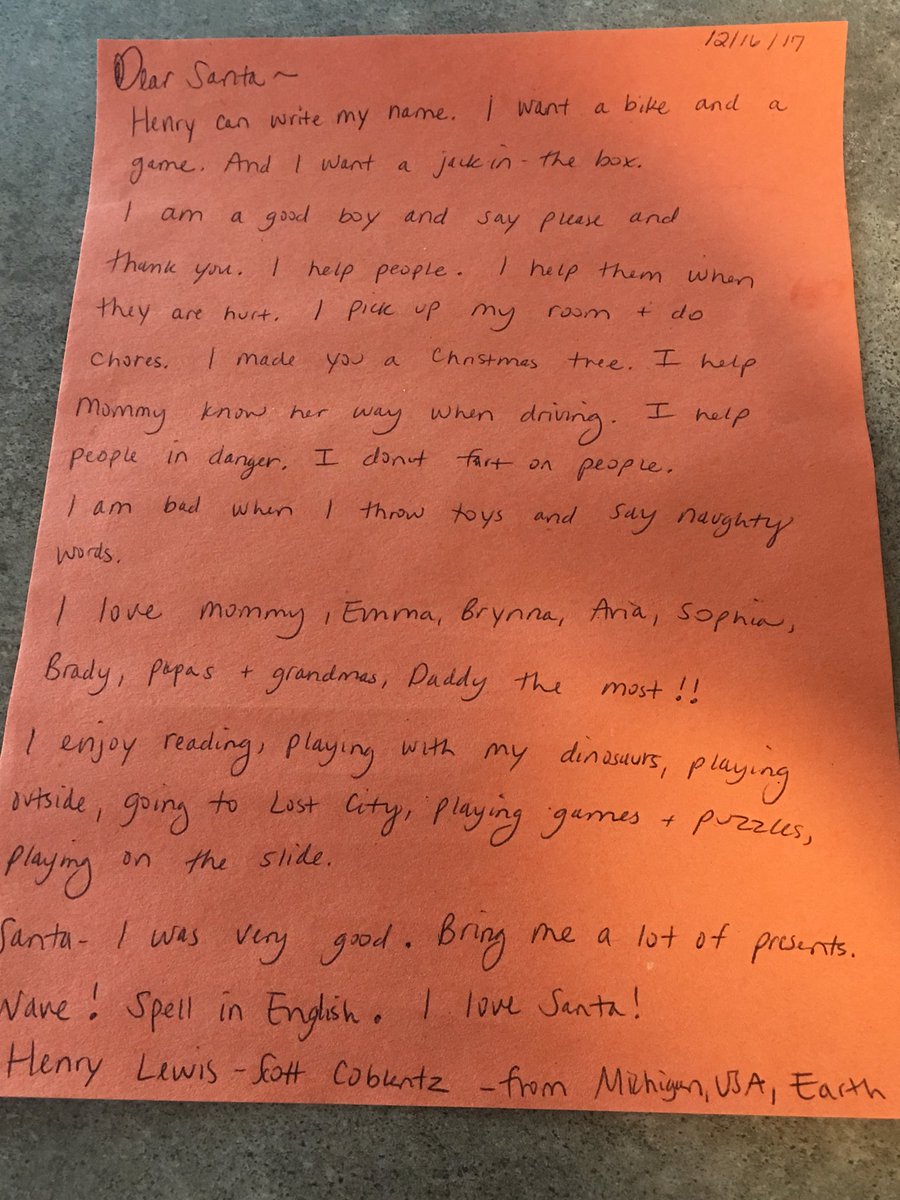 12/16/17
Dear Santa~
Henry can write my name. I want a bike and a
game. And I want a jack-in-the box.
I am a good boy and say please and
thank you. I help people. I help them when
they are hurt. I pick up my room + do
chores. I made you a Christmas tree. I help
Mommy know her way when driving. I help
people in danger. I donut fart on people.
I am bad when I throw toys and say naughty
words.
I love mommy, Emma, Brynna, Aria, Sophia,
Brady, papas + grandmas, Daddy the most!!
I enjoy reading, playing with my dinosaurs, playing
outside, going to Lost City, playing games + puzzles,
playing on the slide.
Santa- I was very good. Bring me a lot of presents.
Wave! Spell in English. I love Santa!
Henry Lewis-Scott Coblentz -from Michigan, USA, Earth